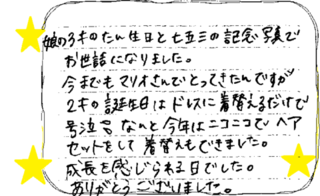 娘の3才のたん生日と七五三の記念写真で
お世話になりました。
今までもマリオさんでとってきたんですが
2才の誕生日はドレスに着替えるだけで
号泣 なんと今年はニコニコでヘア
セットをして着替えもできました。
成長を感じられる日でした。
ありがとうございました。